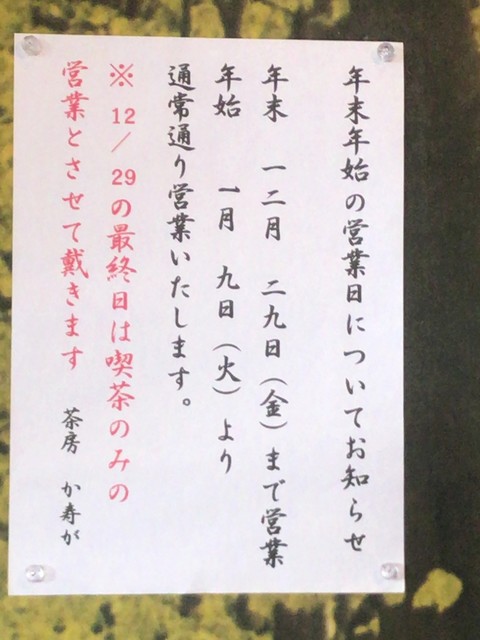 年末年始の営業日についてお知らせ
年末 一二月 二九日(金)まで営業
年始 一月 九日(火)より
通常通り営業いたします。
※12/29の最終日は喫茶のみの
営業とさせて戴きます
茶房 か寿が